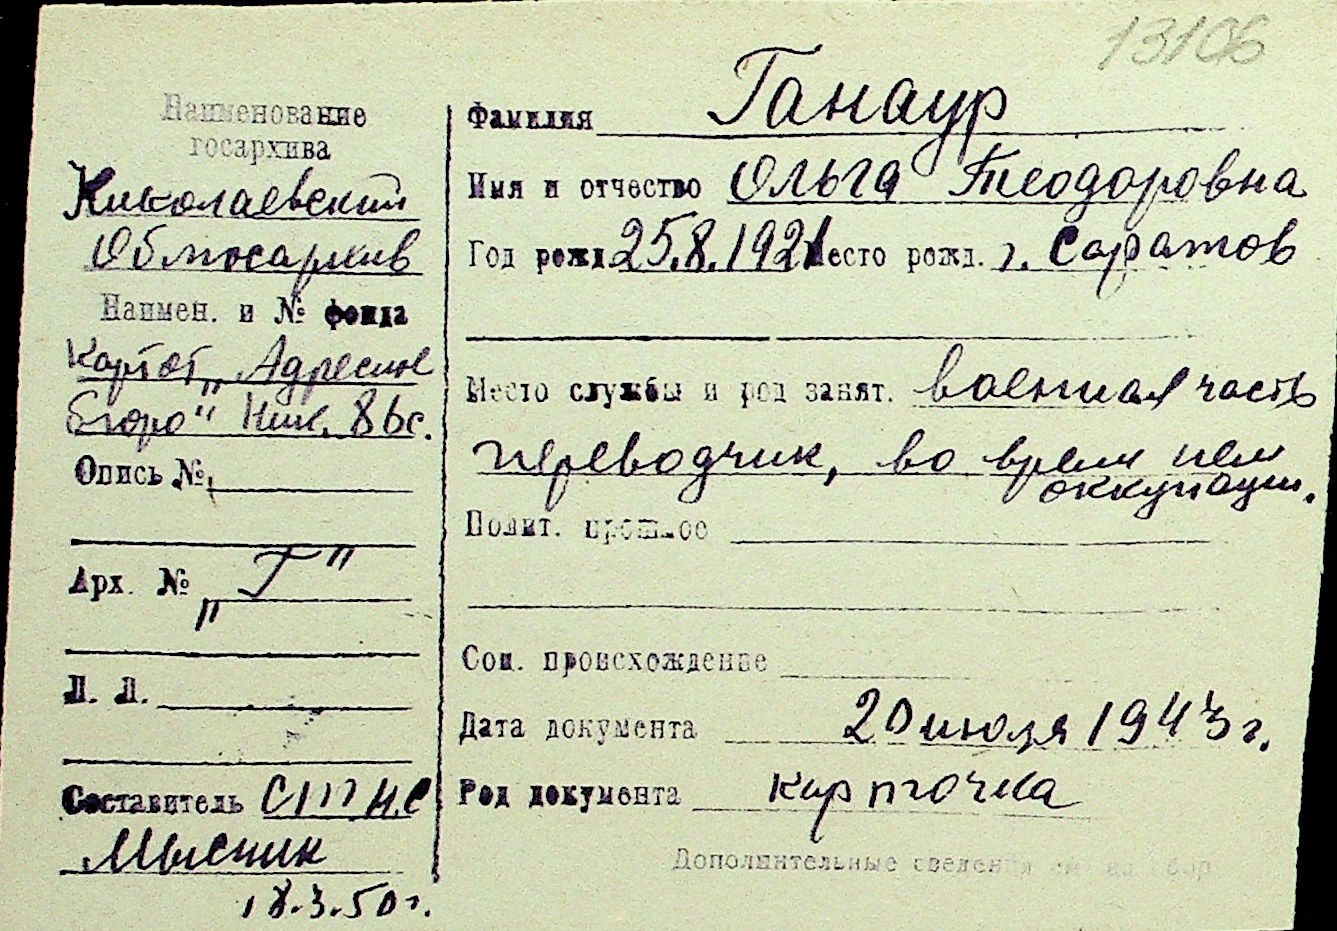 13106
Наименование
госархива
Николаевский
Облгосархив
Наимен. и № фонда
Картот. „Адресное
бюро" Ник.
Опись №
Арх. № „Г"
Л. Л.
Составитель
Мысник
18.3.50г.
Фамилия Ганаур
Имя и отчество Ольга Теодоровна
Год рожд 25.8.1921 Место рожд. г. Саратов
Место службы и род занят. военная часть
переводчик, во врем нем
оккупации.
Полит. прошлое
Соц. происхождение
Дата документа 20 июля 1943 г.
Род документа карточка
Дополнительные сведения см на обор